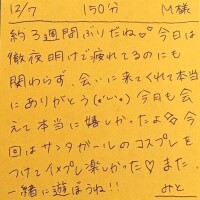 12/7 150分 M様
約3週間ぶりだね♡♡今日は
徹夜明けで疲れてるのにも
関わらず、会いに来てくれて本当
にありがとう(´ω｀)♡今月も会
えて本当に嬉しかったよ 今
回はサンタガールのコスプレを
つけてイメプレ楽しかった♡また、
一緒に遊ぼうね!!
みと